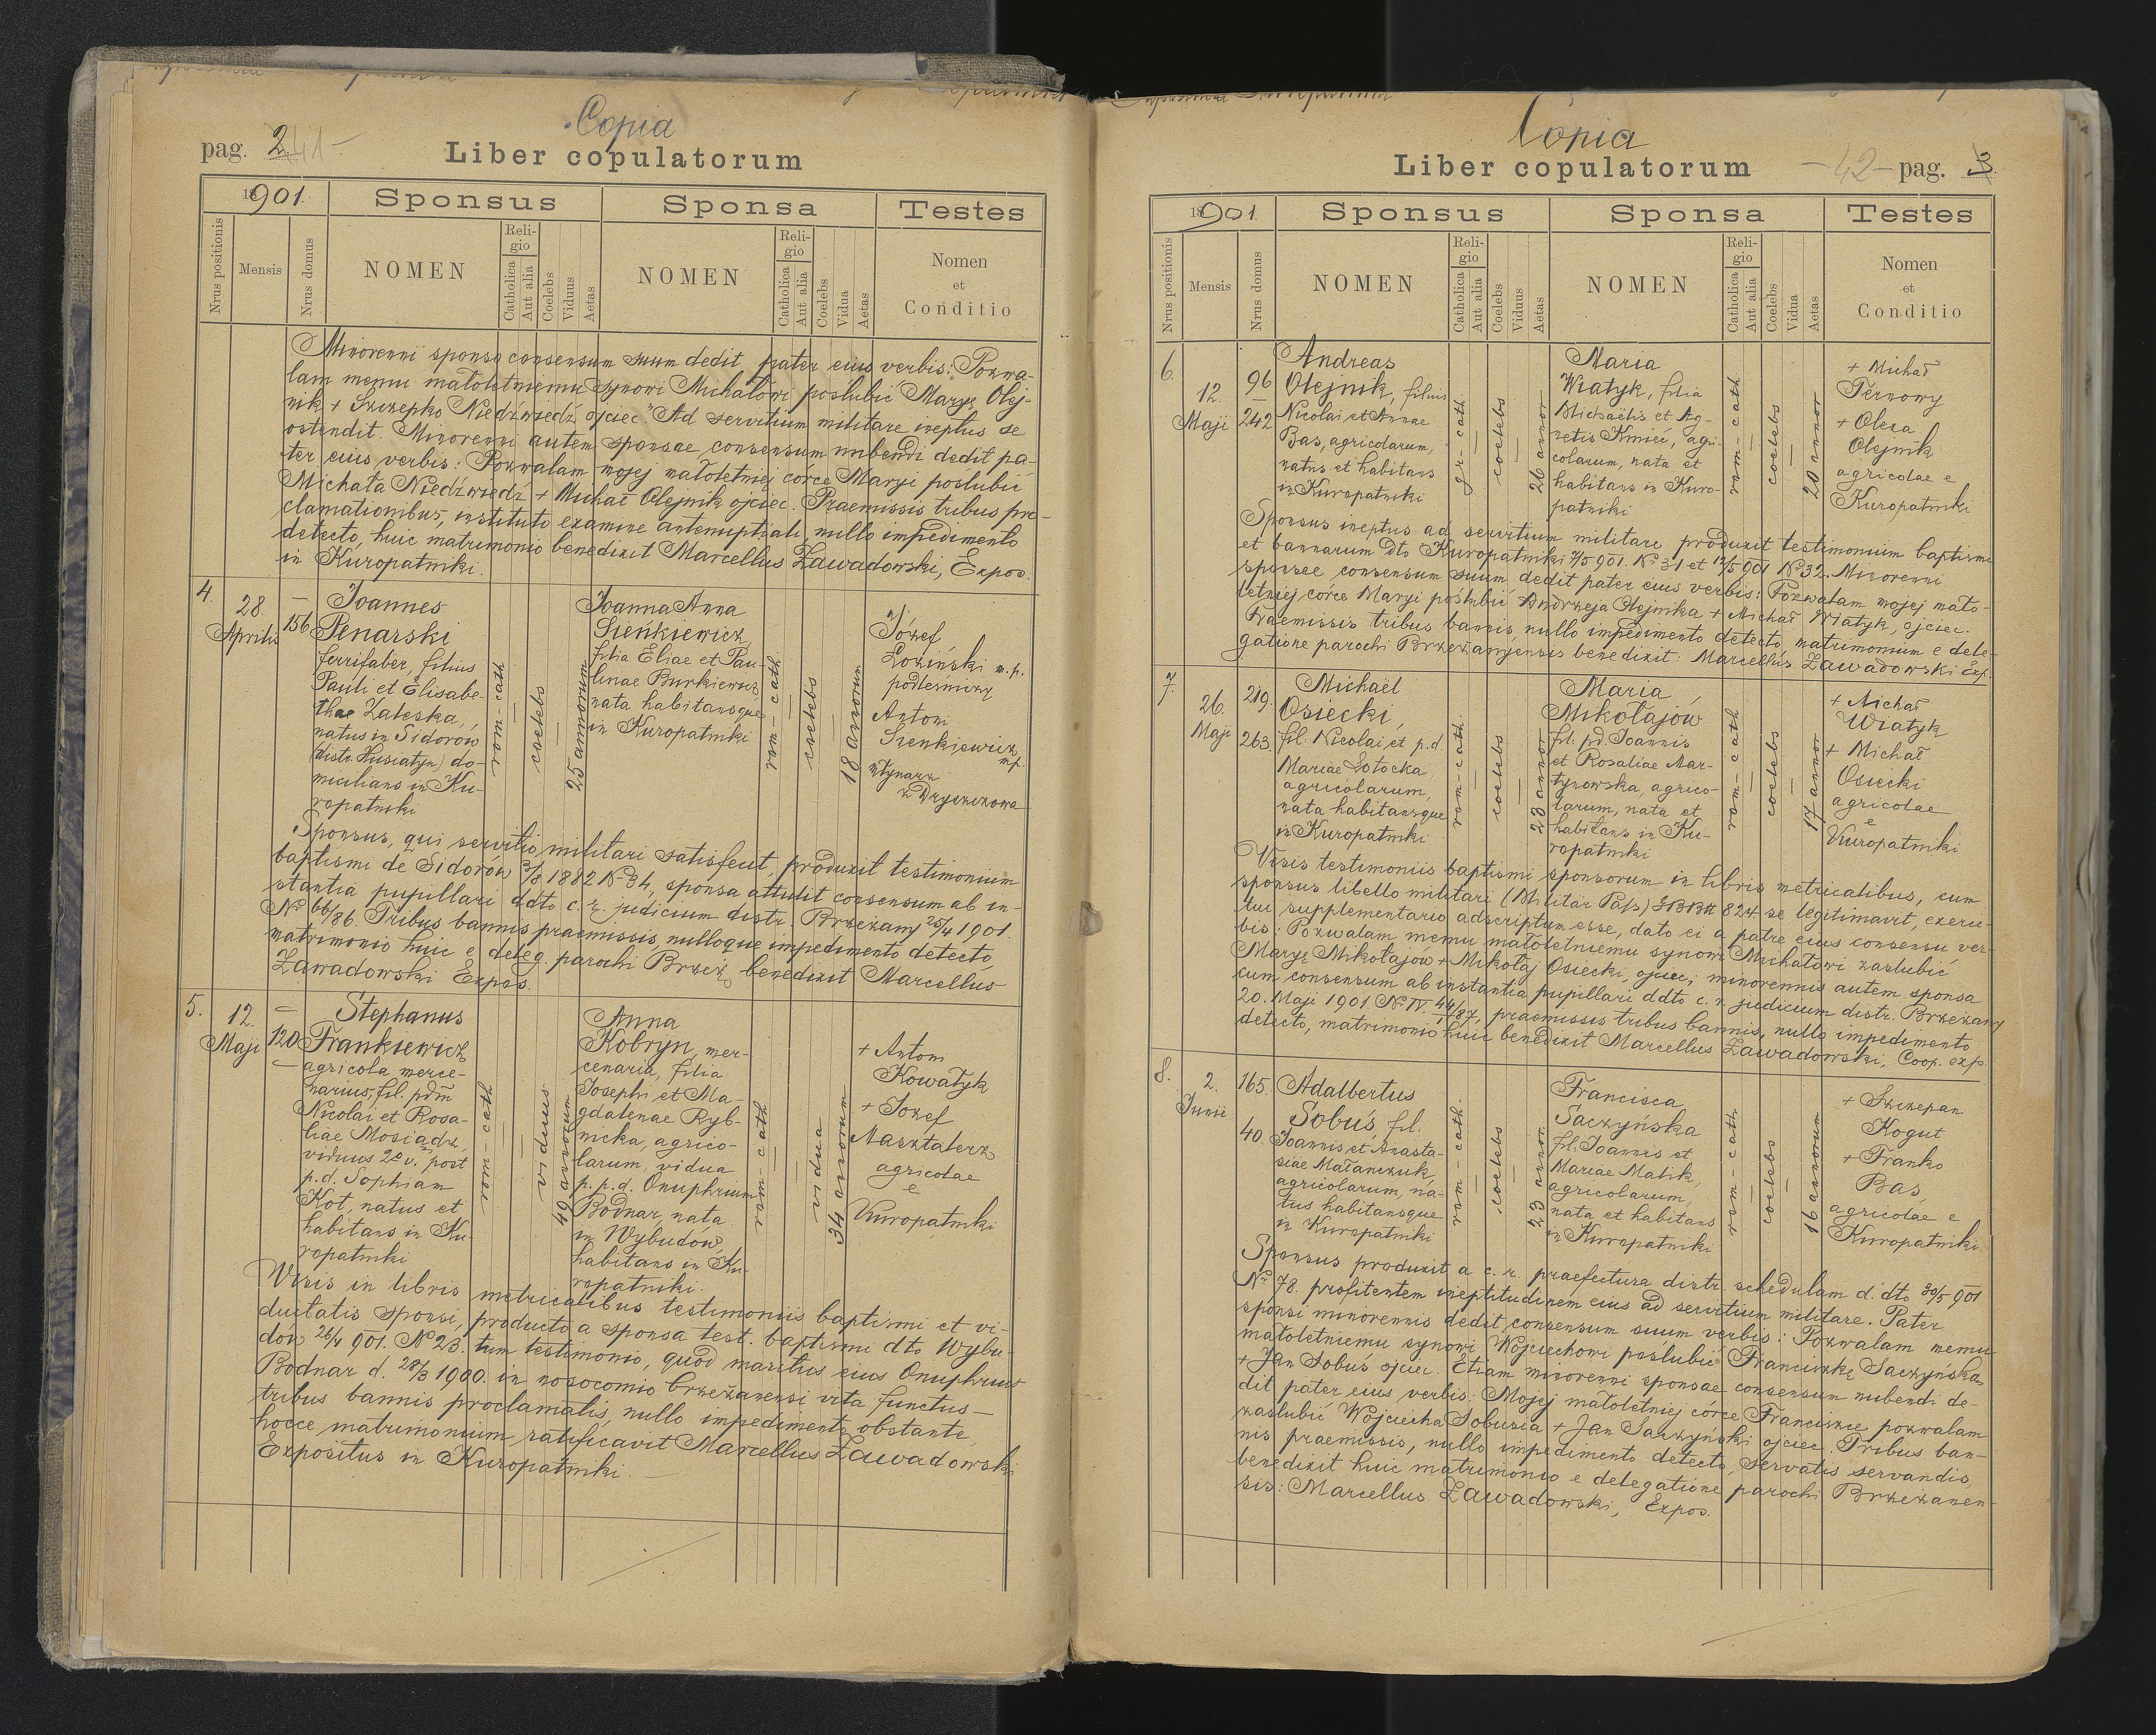 Copia
pag. 2. 41-
Liber copulatorum
18901.
Sponsus
Sponsa
Testes
Nrus positionis
Mensis
Nrus domus
NOMEN
Religio
Catholica
Aut alia
Coelebs
Viduus
Aetas
NOMEN
Religio
Catholica
Aut alia
Coelebs
Vidua
Aetas
Nomen
et
Conditio
Minorenni sponso consensum suum dedit pater eius verbis: Pozwa-
lam memu małoletniemu synowi Michałowi poślubić Maryę Olej-
nik + Szczepko Niedźwiedź ojciec. Ad servitium militare ineptus se
ostendit. Minorenni autem sponsae consensum nubendi dedit pa-
ter eius verbis: Pozwalam mojej małoletniej córce Maryi poślubić
Michała Niedźwiedź + Michał Olejnik ojciec. Praemissis tribus pro-
clamationibus, instituto examine antenuptiali, nullo impedimento
detecto, huic matrimonio benedixit Marcellus Zawadowski, Expos.
in Kuropatniki.
4.
28
Aprilis
156
Joannes
Penarski
ferrifaber, filius
Pauli et Elisabe-
thae Zaleska,
natus in Sidorów
(distr. Husiatyn) do-
micilians in Ku-
ropatniki
rom-cath
coelebs
25 annorum
Joanna Anna
Sieńkiewicz
filia Eliae et Pau-
linae Burkiewicz
nata habitansque
in Kuropatniki
rom-cath
coelebs
18 annorum
Józef
Łoziński m.p.
podleśniczy
Antoni
Sienkiewicz
mp.
młynarz
z Dryszczowa
Sponsus, qui servitio militari satisfecit, produxit testimonium
baptismi de Sidorów 3/8 1882 N 34, sponsa attulit consensum ab in-
stantia pupillari ddto c. r. judicium distr. Brzeżany 25/4 1901.
No 66/86. Tribus bannis praemissis, nulloque impedimento detecto,
matrimonio huic e deleg. parochi Brzeż. benedixit Marcellus
Zawadowski Expos.
5.
12.
Maji
120
Stephanus
Frankiewicz
agricola merce-
narius, fil. pdm
Nicolai et Rosa-
liae Mosiądz
viduus 2o v. post
p.d. Sophiam
Kot, natus et
habitans in Ku-
ropatniki
rom-cath
viduus
49 annorum
Anna
Kobryn, mer-
cenaria, filia
Josephi et Ma-
gdalenae Ryb-
nicka, agrico-
larum, vidua
p. p.d. Onuphrium
Bodnar, nata
in Wybudów
habitans in Ku-
ropatniki.
rom-cath
vidua
34 annorum
+ Antoni
Kowałyk
+ Józef
Masztalerz
agricolae
e
Kuropatniki
Visis in libris metricalibus testimoniis baptismi et vi-
duitatis sponsi, producto a sponsa test. baptismi dto Wybu-
dów 26/4 901. No 23. tum testimonio, quod maritus eius Onuphrius
Bodnar d. 28/3 1900. in nosocomio brzeżanensi vita functus—
tribus bannis proclamatis, nullo impedimento obstante,
hocce matrimonium ratificavit Marcellus Zawadowski
Expositus in Kuropatniki.
Copia
Liber copulatorum
-42- pag. 3
18901.
Sponsus
Sponsa
Testes
Nrus positionis
Mensis
Nrus domus
NOMEN
Religio
Catholica
Aut alia
Coelebs
Viduus
Aetas
NOMEN
Religio
Catholica
Aut alia
Coelebs
Vidua
Aetas
Nomen
et
Conditio
6.
12.
Maji
96
242
Andreas
Olejnik, filius
Nicolai et Annae
Bas, agricolarum,
natus et habitans
in Kuropatniki
gr-cath
coelebs
26 annor
Maria
Wiatyk, filia
Michaëlis et Ag-
netis Kmieć, agri-
colarum, nata et
habitans in Kuro-
patniki
rom-cath
coelebs
20 annor
+ Michał
Ternowy
+ Olexa
Olejnik
agricolae e
Kuropatniki
Sponsus ineptus ad servitium militare produxit testimonium baptismi
et bannorum dto Kuropatniki 7/5 901. No 31 et 12/5 901 No 32. Minorenni
sponsae consensum suum dedit pater eius verbis: Pozwalam mojej mało-
letniej córce Maryi poślubić Andrzeja Olejnika + Michał Wiatyk, ojciec.
Praemissis tribus bannis, nullo impedimento detecto, matrimonium e dele-
gatione parochi Brzeżanensis benedixit: Marcellus Zawadowski Exp.
7.
26.
Maji
219.
263.
Michaël
Osiecki,
fil. Nicolai et p.d.
Mariae Łotocka,
agricolarum,
natus habitansque
in Kuropatniki
rom-cath.
coelebs
23 annor
Maria
Mikołajów
fil. pd. Joannis
et Rosaliae Mar-
tynowska, agrico-
larum, nata et
habitans in Ku-
ropatniki
rom-cath
coelebs
17 annor
+ Michał
Wiatyk
+ Michał
Osiecki
agricolae
e
Kuropatniki
Visis testimoniis baptismi sponsorum in libris metricalibus, cum
sponsus libello militari (Militär Paß) GBBK 824 se legitimavit, exerci-
tui supplementario adscriptum esse, dato ei a patre eius consensu ver-
bis: Pozwalam memu małoletniemu synowi Michałowi zaślubić
Maryę Mikołajów + Mikołaj Osiecki, ojciec; minorennis autem sponsa
cum consensum ab instantia pupillari ddto c. r. judicium distr. Brzeżany
20. Maji 1901 No IV. 44/87, praemissis tribus bannis, nullo impedimento
detecto, matrimonio huic benedixit Marcellus Zawadowski, Coop. exp.
8.
2.
Junii
165.
40.
Adalbertus
Sobuś, fil.
Joannis et Anasta-
siae Małanczuk,
agricolarum, na-
tus habitansque
in Kuropatniki
rom-cath.
coelebs
23 annor
Francisca
Saczyńska
fil. Joannis et
Mariae Matik,
agricolarum,
nata et habitans
in Kuropatniki
rom-cath
coelebs
16 annorum
+ Szczepan
Kogut
+ Franko
Bas,
agricolae e
Kuropatniki
Sponsus produxit a c. r. praefectura distr. schedulam d. dto 30/5 901
No 78. profitentem ineptitudinem eius ad servitium militare. Pater
sponsi minorennis dedit consensum suum verbis: Pozwalam memu
małoletniemu synowi Wojciechowi poślubić Franciszkę Saczyńską
+ Jan Sobuś ojciec. Etiam minorenni sponsae consensum nubendi de-
dit pater eius verbis: Mojej małoletniej córce Franciszce pozwalam
zaślubić Wojciecha Sobusia + Jan Saczyński ojciec. Tribus ban-
nis praemissis, nullo impedimento detecto, servatis servandis,
benedixit huic matrimonio e delegatione parochi Brzeżanen-
sis: Marcellus Zawadowski, Expos.